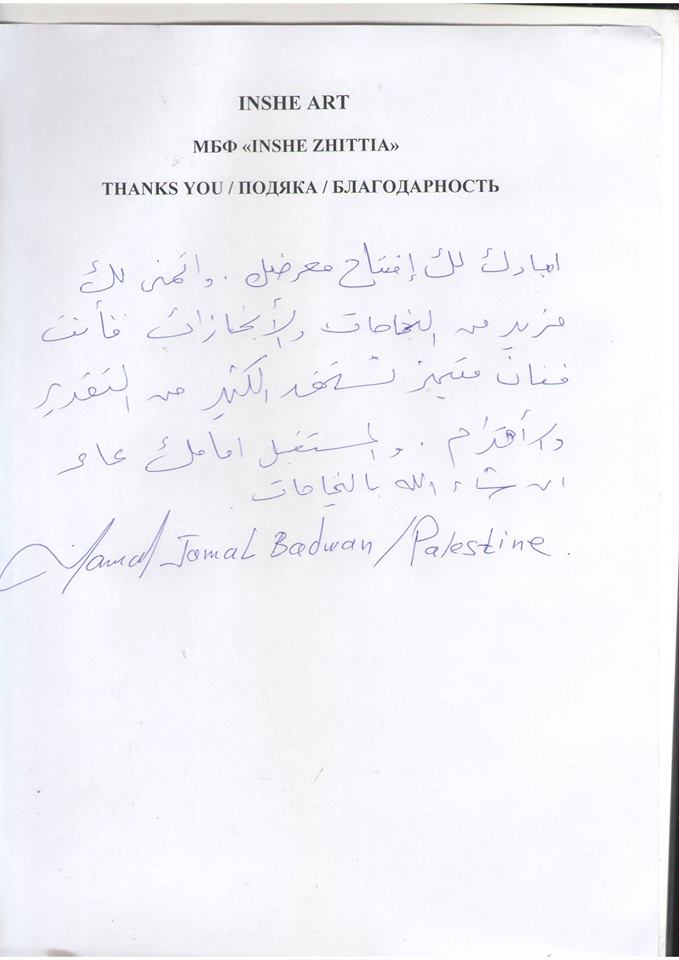 INSHE ART
МБФ «INSHE ZHITTIA»
THANKS YOU / ПОДЯКА / БЛАГОДАРНОСТЬ
ابارك لك إفتتاح معرضك . واتمنى لك
مزيد من النجاحات والأنجازات فأنت
فنان متميز تستحق الكثير من التقدير
والأحترام . والمستقبل امامك
ان شاء الله بالنجاحات .
Jamal Badwan / Palestine .